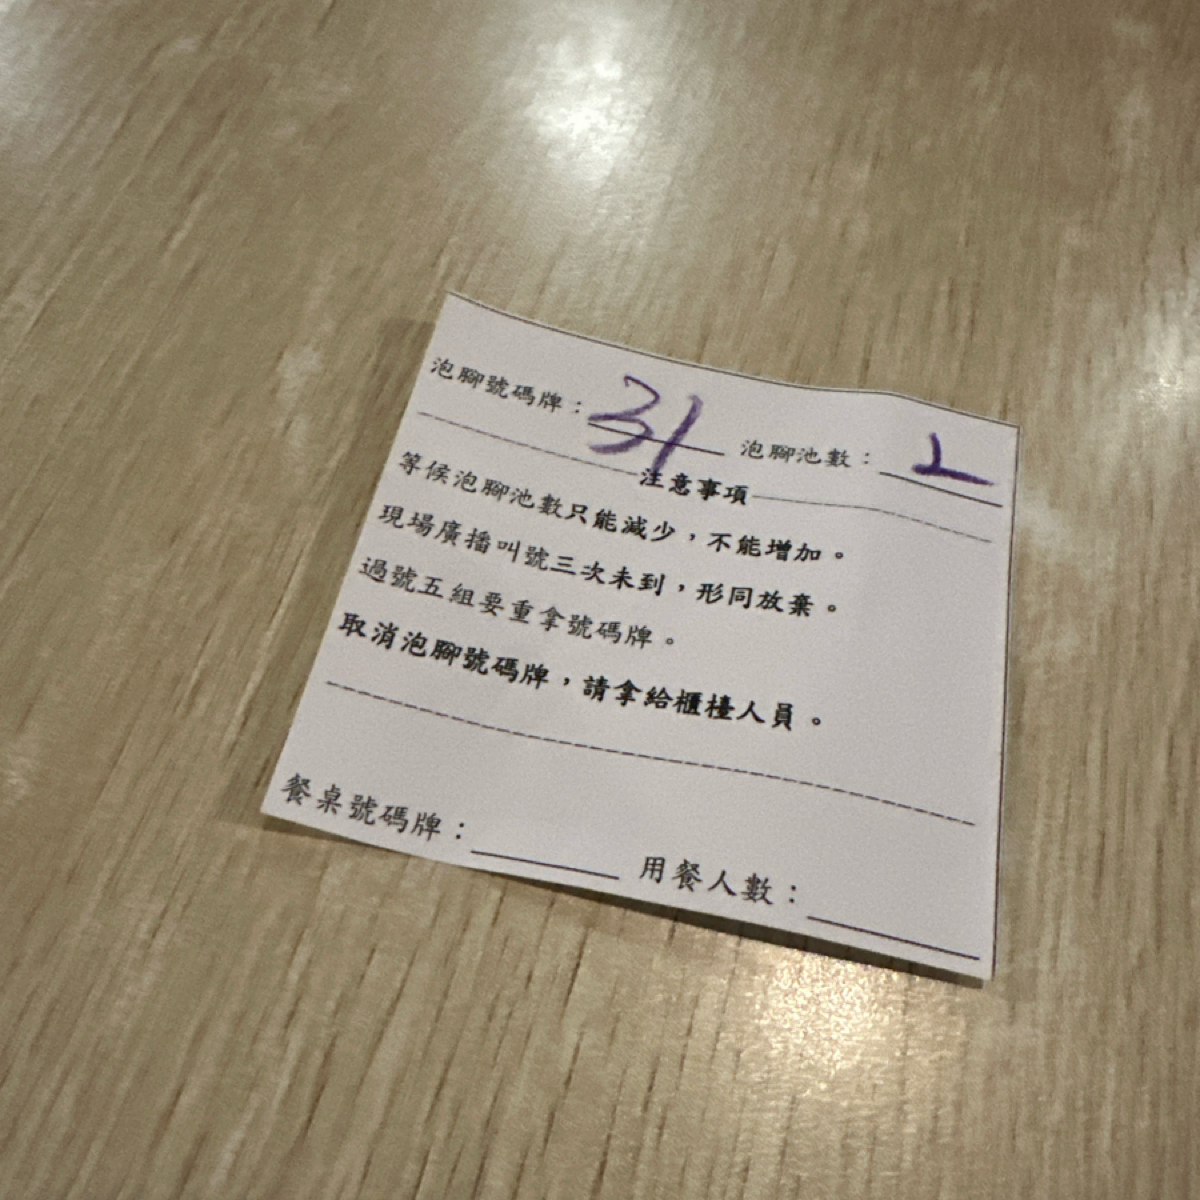 泡腳號碼牌：31 泡腳池數：
注意事項
等候泡腳池數只能減少，不能增加。
現場廣播叫號三次未到，形同放棄。
過號五組要重拿號碼牌。
取消泡腳號碼牌，請拿給櫃檯人員。
餐桌號碼牌：______ 用餐人數：______